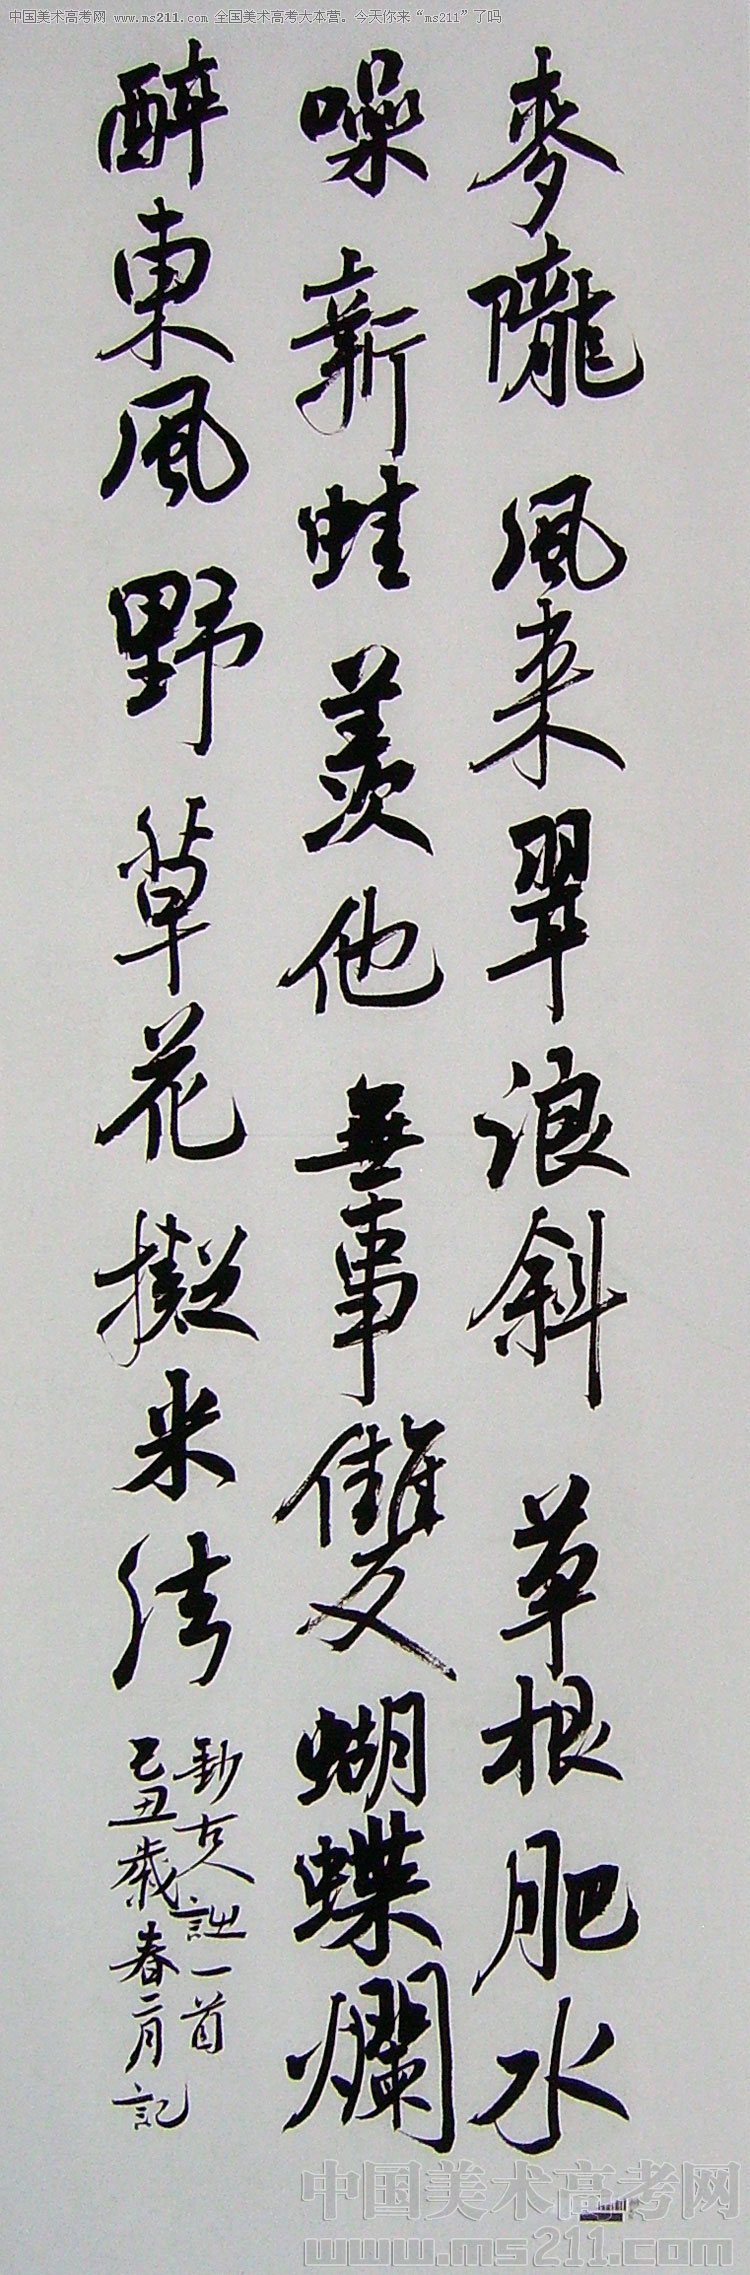 中国美术高考网 www.ms211.com 全国美术高考大本营。今天你来“ms211”了吗
麥隴風來翠浪斜草根肥水
噪新蛙羨他無事雙蝴蝶爛
醉東風野草花擬米法
鈔古人詩一首
己丑歲春二月記
中国美术高考网
www.ms211.com